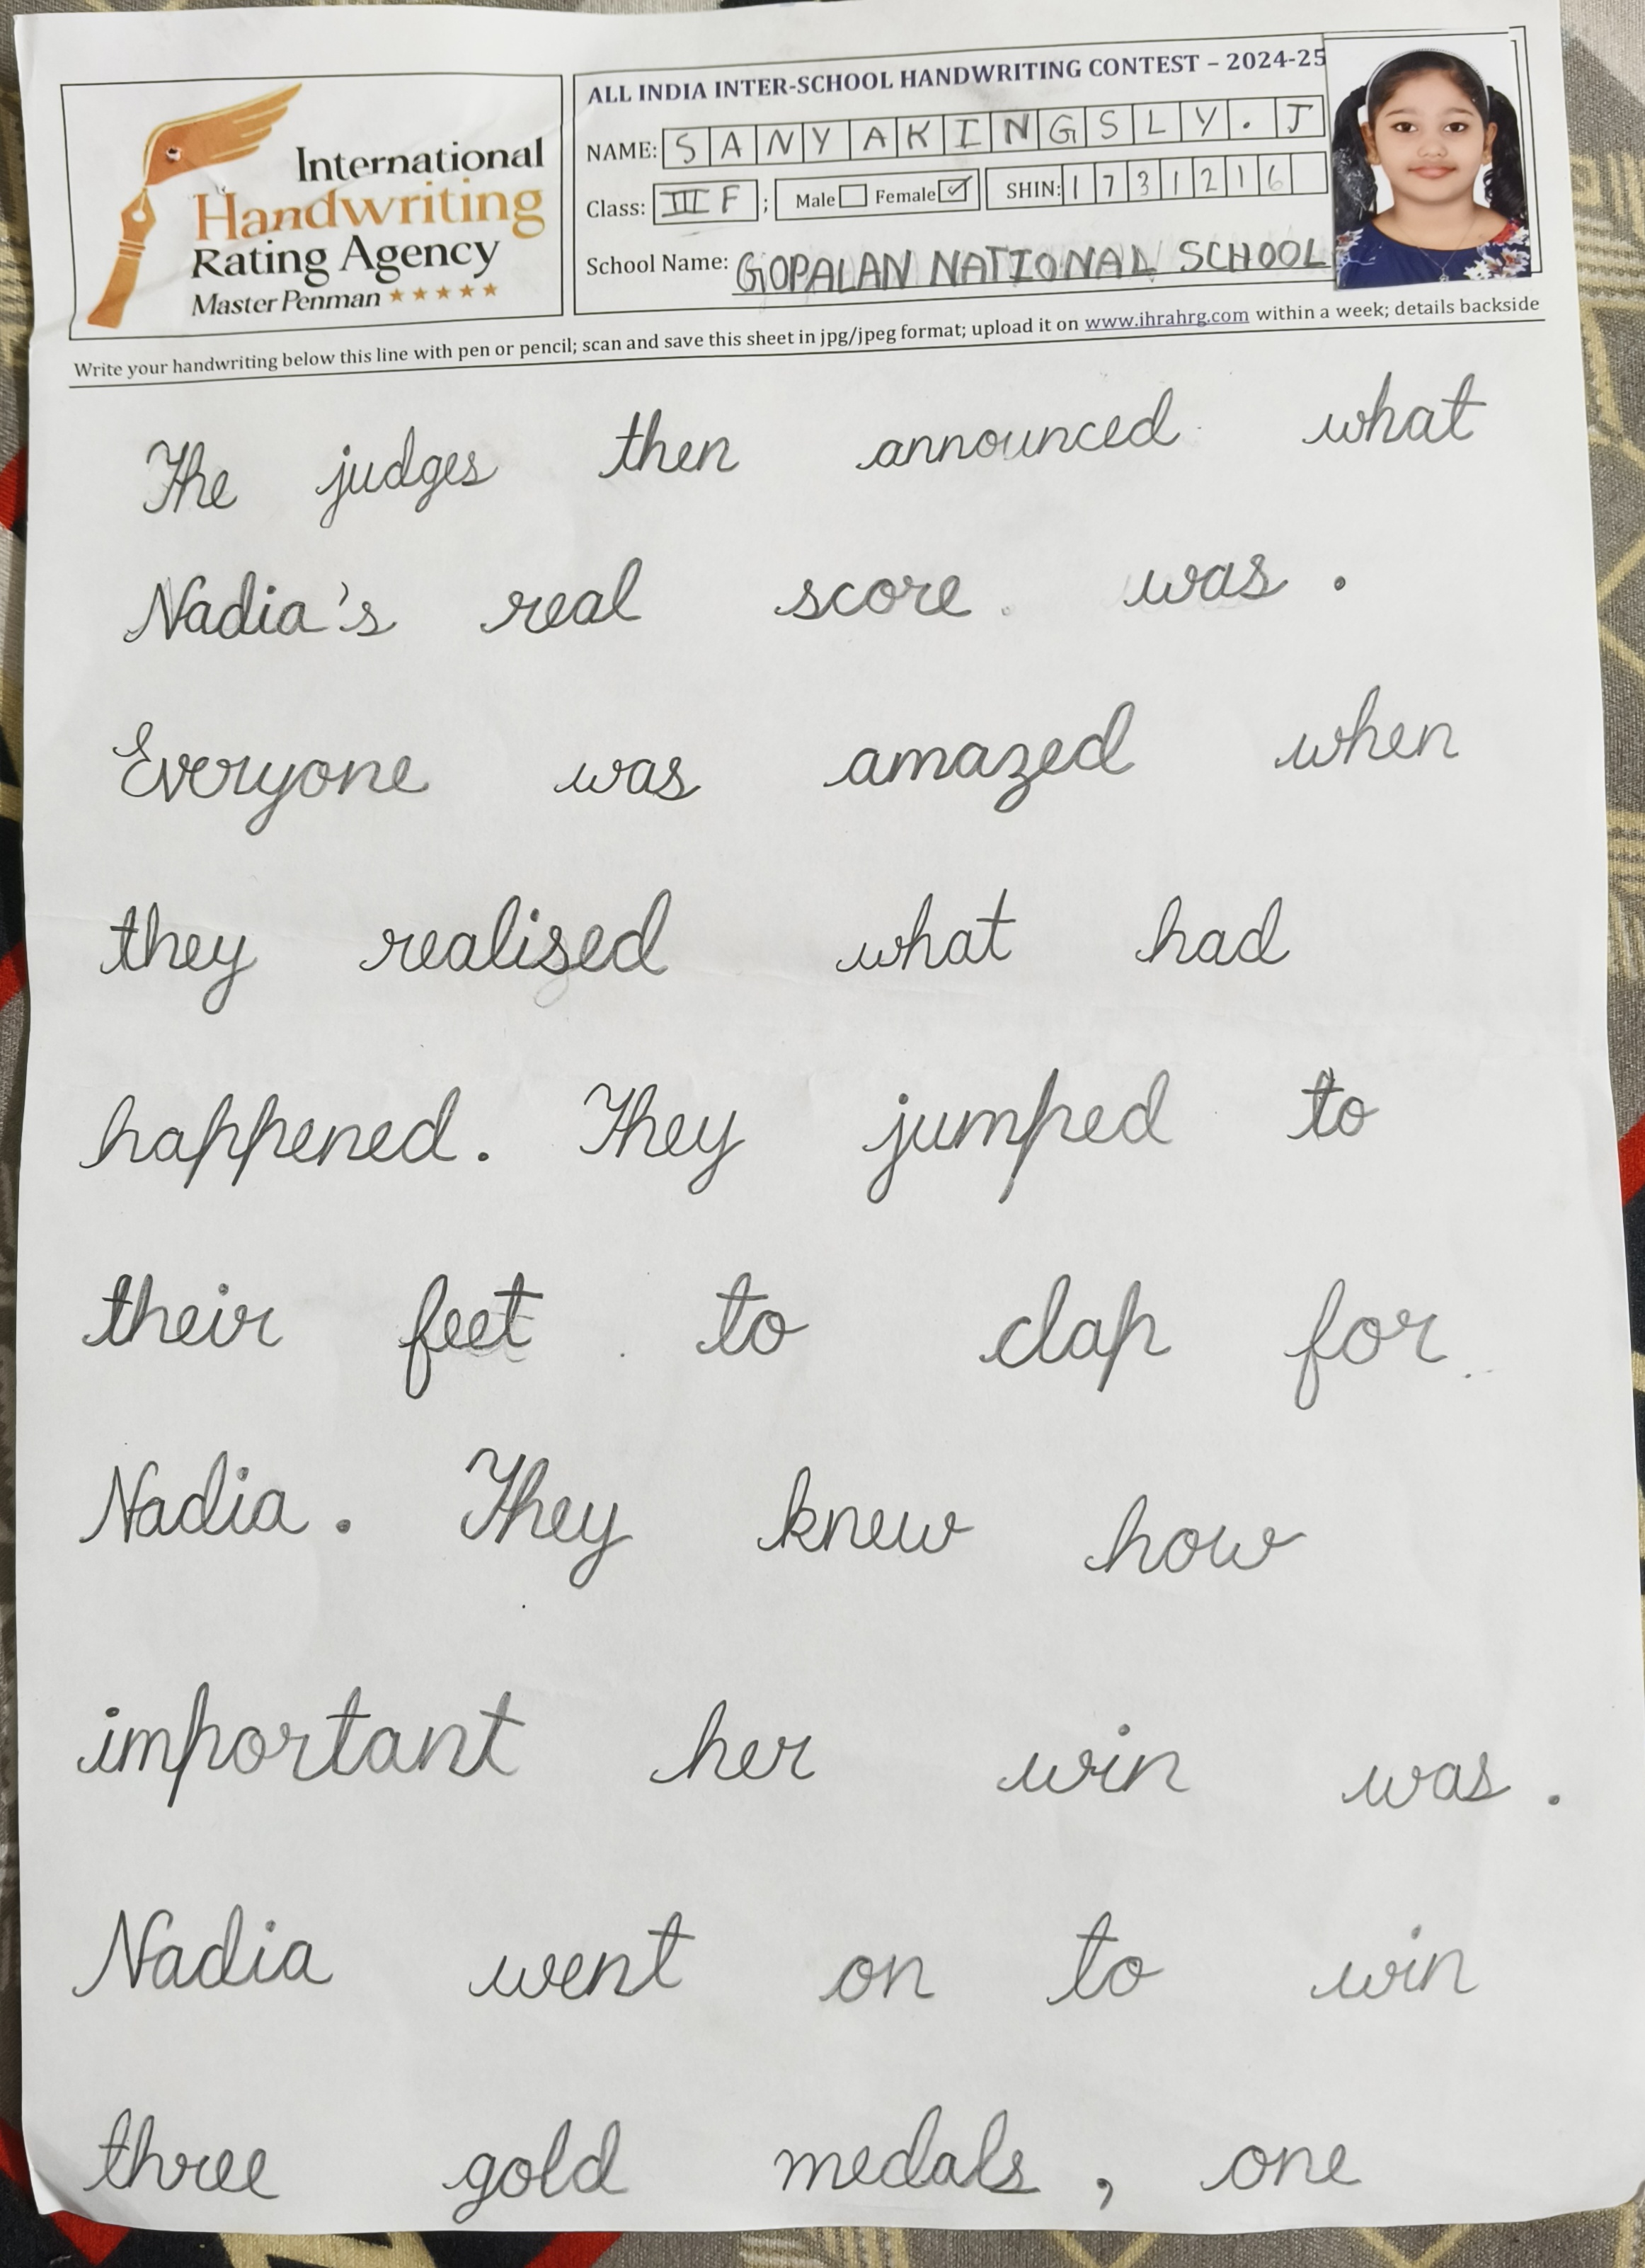 International
Handwriting
Rating Agency
Master Penman ★★★★★
ALL INDIA INTER-SCHOOL HANDWRITING CONTEST – 2024-25
NAME: SANYAKINGSLY.J
Class: III F ; Male Female ✓ SHIN: 1731216
School Name: GOPALAN NATIONAL SCHOOL
Write your handwriting below this line with pen or pencil; scan and save this sheet in jpg/jpeg format; upload it on www.ihrahrg.com within a week; details backside
The judges then announced what
Nadia's real score was.
Everyone was amazed when
they realised what had
happened. They jumped to
their feet to clap for
Nadia. They knew how
important her win was.
Nadia went on to win
three gold medals, one